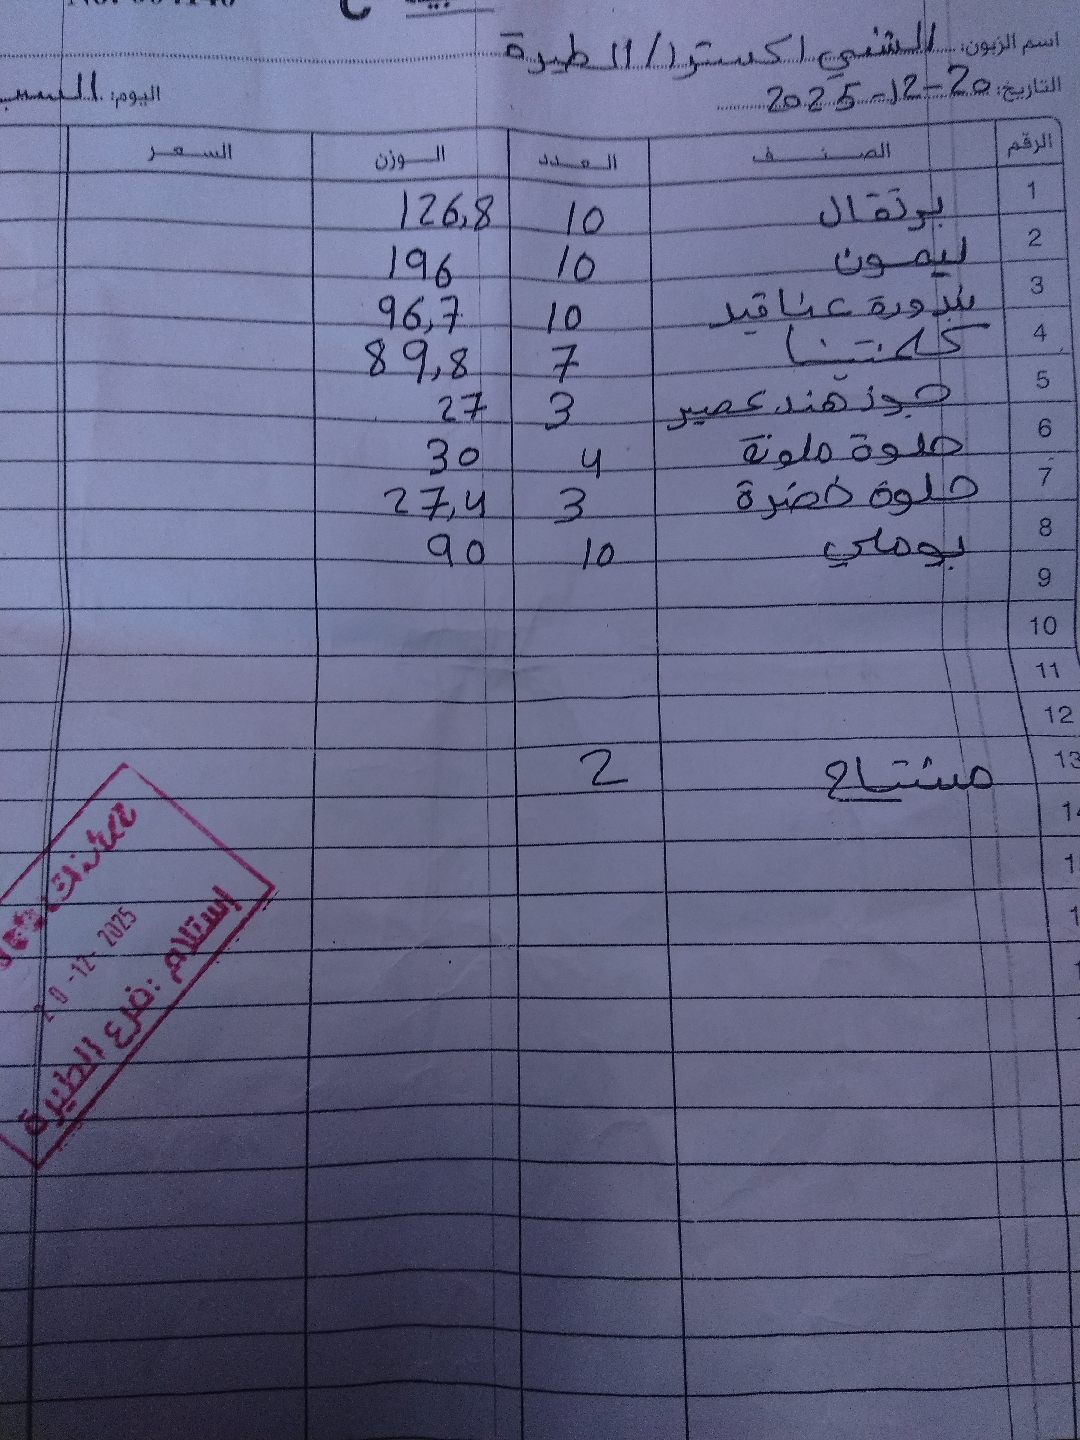 اسم الزبون: الشني اكسترا/الطيرة
التاريخ: 20-12-2025
اليوم: السب
الرقم الصنف العدد الوزن السعر
1 برتقال 10 126,8
2 ليمون 10 196
3 بندورة عناقيد 10 96,7
4 كلمنتينا 7 89,8
5 جوز هند عصير 3 27
6 حلوة ملونة 4 30
7 حلوة خضرة 3 27,4
8 بوملي 10 90
9
10
11
12
13 مشتاح 2
20-12-2025
إستلام: فرع الطيرة